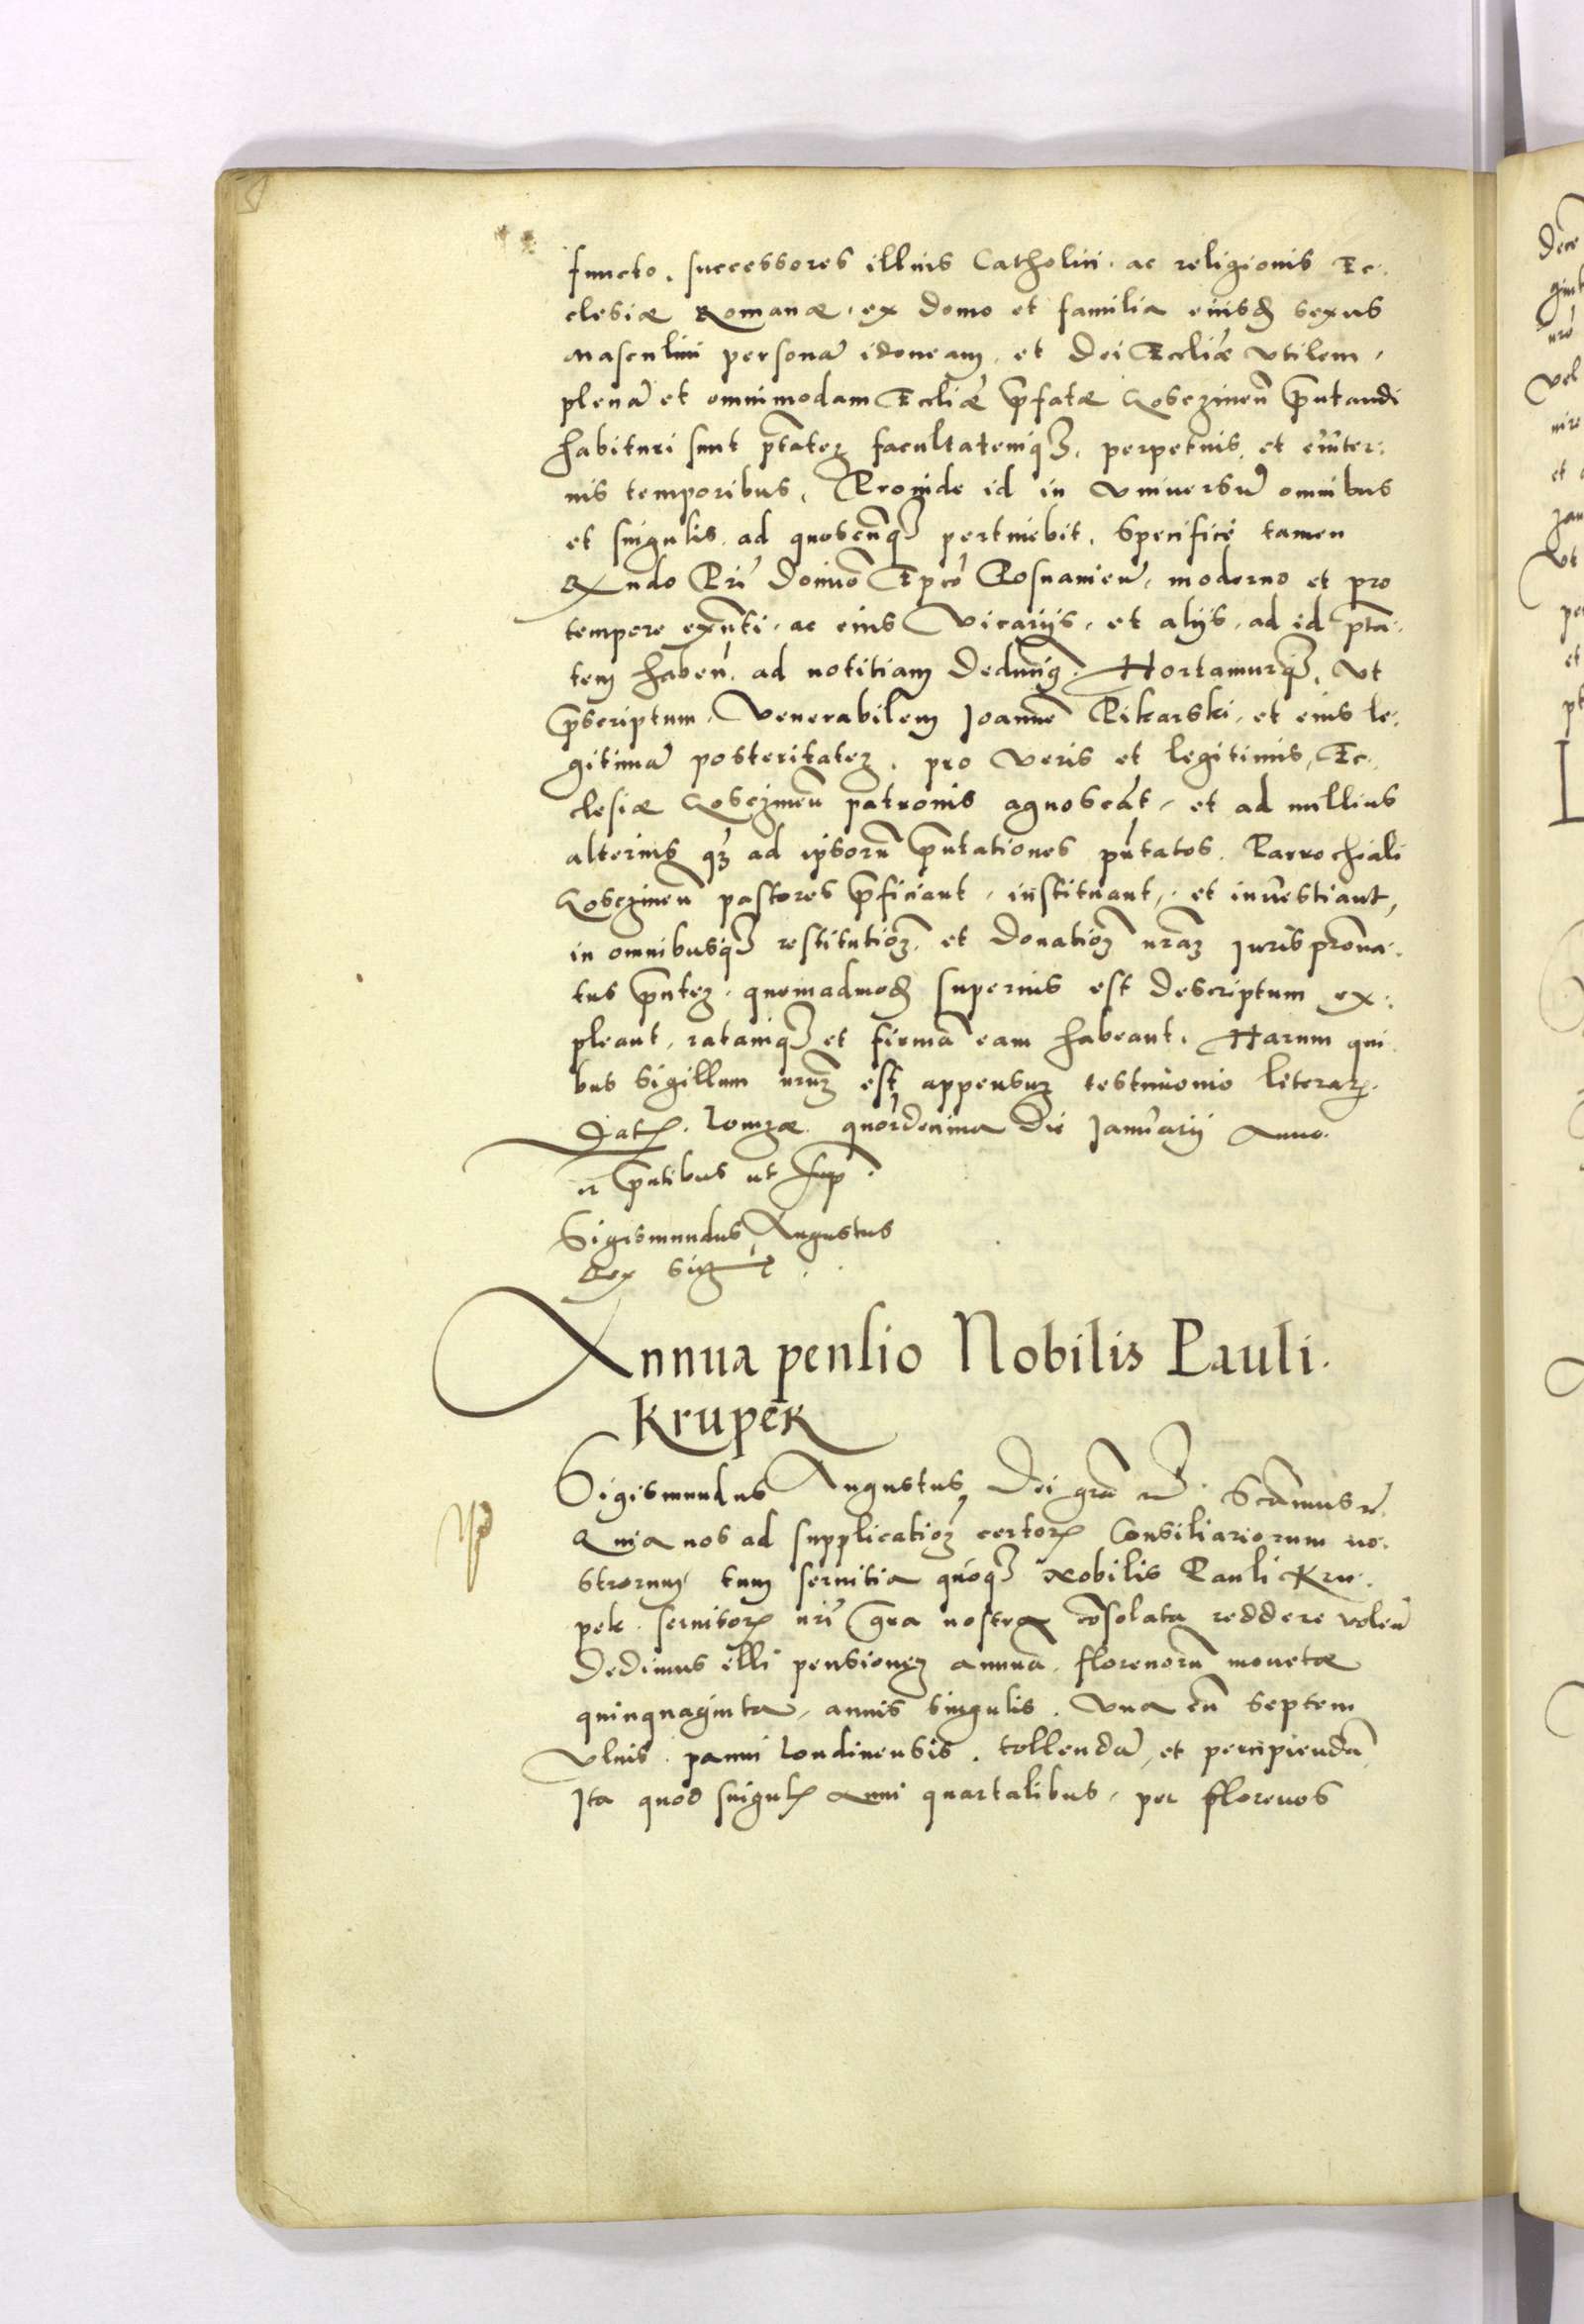 functo, successores illius Catholici, ac religionis Ec-
clesiæ Romanæ, ex domo et familia eiusd sexus
Masculini personã idoneam, et Dei Eccliæ vtilem,
plenã et omnimodam Eccliæ p̃fatæ Gosczinen̄ p̃ntandi
habituri sunt p̃tatem facultatemq₃, perpetuis, et æuiter-
nis temporibus, Proinde id in vniversũ omnibus
et singulis, ad quoscũq₃ pertinebit, Specifice tamen
Rx̃ndo Pri Domino Ep̃co Posnanien̄, moderno et pro
tempore exñti, ac eius Vicarijs, et alijs, ad id p̃ta-
tem haben̄, ad notitiam deducim⁹. Hortamurq₃, vt
p̃scriptum, Venerabilem Joannē Pikarski, et eius le-
gitimã posteritatem, pro veris et legitimis, Ec-
clesiæ Gosczinen̄ patronis agnoscãt, et ad nullius
alterius q₃ ad ipsorũ p̃ntationes p̃ntatos, Parrochiali
Gosczinen̄ pastores p̃ficiant, instituant, et inuestiant,
in omnibusq₃ restitutiõem, et donatiõem nrãm Juris prõna-
tus p̃ntem, quemadmod superius est descriptum ex-
pleant, ratamq₃ et firmã eam habeant. Harum qui-
bus sigillum nrũm est appensum testimonio literar.
Dat. Lomzæ quordecima die Januarij Anno.
rc p̃ntibus ut sup̃.
Sigismundus Augustus
Rex
Annua pensio Nobilis Pauli
Krupek
Sigismundus Augustus Dei grã rc. Scamus rc.
Quia nos ad supplicatiõem certor Consiliariorum no-
strorum, tum seruitia quoq₃ Nobilis Pauli Kru-
pek seruitor nri grã nostra cõsolata reddere volen̄
Dedimus illi pensionem annuã, florenorũ monetæ
quinquaginta, annis singulis, vna cũ septem
vlnis panni Londinensis, tollendã, et percipiendã,
Ita quod singul Anni quartalibus, per florenos